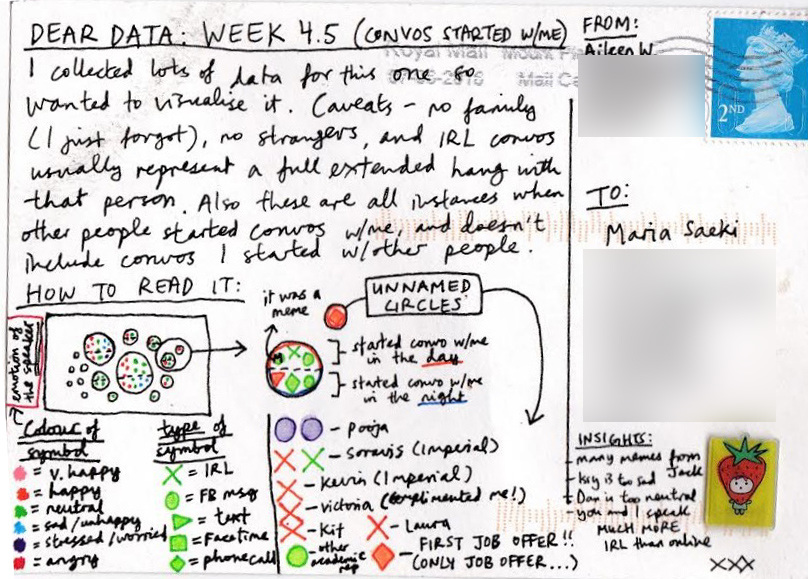 DEAR DATA: WEEK 4.5 (CONVOS STARTED W/ME)
I collected lots of data for this one so
wanted to visualise it. Caveats - no family
(I just forgot), no strangers, and IRL convos
usually represent a full extended hang with
that person. Also these are all instances when
other people started convos w/me, and doesn't
include convos I started w/other people.
FROM:
Aileen W
2ND
Royal Mail
Mail
TO:
Maria Saeki
HOW TO READ IT:
emotion of
the speaker
it was a
meme
M
UNNAMED
CIRCLES
started convo w/me
in the day
started convo w/me
in the night
Colour of
symbol
= v. happy
= happy
= neutral
= sad/unhappy
= stressed/worried
= angry
type of
symbol
= IRL
= FB msg
= text
= Facetime
= phonecall
- Pooja
- Soravis (Imperial)
- Kevin (Imperial)
- Victoria (complimented me!)
- Kit
- Laura
- other
academic
rep
- FIRST JOB OFFER!!
(ONLY JOB OFFER...)
INSIGHTS:
- many memes from
Jack
- Kay is too sad
- Dan is too neutral
- you and I speak
MUCH MORE
IRL than online
XXX